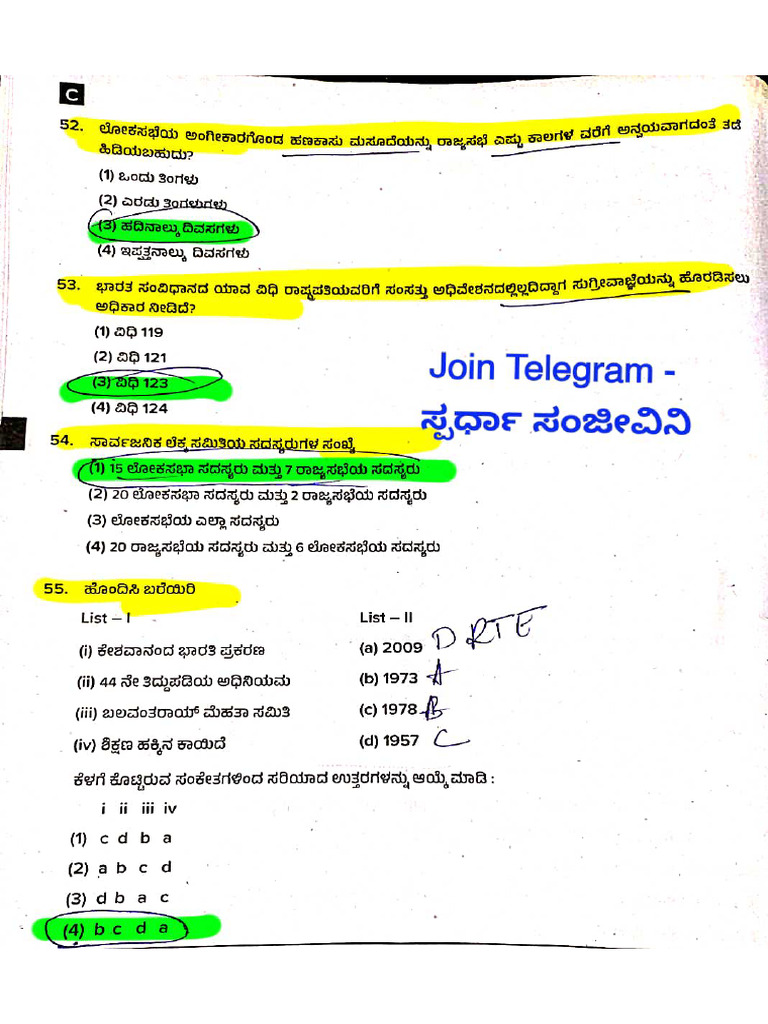 C
52. ಲೋಕಸಭೆಯ ಅಂಗೀಕಾರಗೊಂಡ ಹಣಕಾಸು ಮಸೂದೆಯನ್ನು ರಾಜ್ಯಸಭೆ ಎಷ್ಟು ಕಾಲಗಳ ವರೆಗೆ ಅನ್ವಯವಾಗದಂತೆ ತಡೆ
ಹಿಡಿಯಬಹುದು?
(1) ಒಂದು ತಿಂಗಳು
(2) ಎರಡು ತಿಂಗಳುಗಳು
(3) ಹದಿನಾಲ್ಕು ದಿವಸಗಳು
(4) ಇಪ್ಪತ್ತನಾಲ್ಕು ದಿವಸಗಳು
53. ಭಾರತ ಸಂವಿಧಾನದ ಯಾವ ವಿಧಿ ರಾಷ್ಟ್ರಪತಿಯವರಿಗೆ ಸಂಸತ್ತು ಅಧಿವೇಶನದಲ್ಲಿಲ್ಲದಿದ್ದಾಗ ಸುಗ್ರೀವಾಜ್ಞೆಯನ್ನು ಹೊರಡಿಸಲು
ಅಧಿಕಾರ ನೀಡಿದೆ?
(1) ವಿಧಿ 119
(2) ವಿಧಿ 121
(3) ವಿಧಿ 123
(4) ವಿಧಿ 124
Join Telegram -
ಸ್ಪರ್ಧಾ ಸಂಜೀವಿನಿ
54. ಸಾರ್ವಜನಿಕ ಲೆಕ್ಕ ಸಮಿತಿಯ ಸದಸ್ಯರುಗಳ ಸಂಖ್ಯೆ
(1) 15 ಲೋಕಸಭಾ ಸದಸ್ಯರು ಮತ್ತು 7 ರಾಜ್ಯಸಭೆಯ ಸದಸ್ಯರು
(2) 20 ಲೋಕಸಭಾ ಸದಸ್ಯರು ಮತ್ತು 2 ರಾಜ್ಯಸಭೆಯ ಸದಸ್ಯರು
(3) ಲೋಕಸಭೆಯ ಎಲ್ಲಾ ಸದಸ್ಯರು
(4) 20 ರಾಜ್ಯಸಭೆಯ ಸದಸ್ಯರು ಮತ್ತು 6 ಲೋಕಸಭೆಯ ಸದಸ್ಯರು
55. ಹೊಂದಿಸಿ ಬರೆಯಿರಿ
List – I List – II
(i) ಕೇಶವಾನಂದ ಭಾರತಿ ಪ್ರಕರಣ (a) 2009 D RTE
(ii) 44 ನೇ ತಿದ್ದುಪಡಿಯ ಅಧಿನಿಯಮ (b) 1973 A
(iii) ಬಲವಂತರಾಯ್ ಮೆಹತಾ ಸಮಿತಿ (c) 1978 B
(iv) ಶಿಕ್ಷಣ ಹಕ್ಕಿನ ಕಾಯಿದೆ (d) 1957 C
ಕೆಳಗೆ ಕೊಟ್ಟಿರುವ ಸಂಕೇತಗಳಿಂದ ಸರಿಯಾದ ಉತ್ತರಗಳನ್ನು ಆಯ್ಕೆ ಮಾಡಿ :
i ii iii iv
(1) c d b a
(2) a b c d
(3) d b a c
(4) b c d a